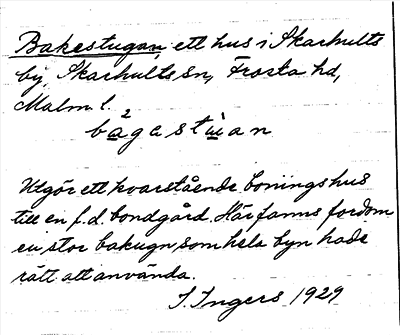 Bakestugan, ett hus i Skarhults
by, Skarhults sn, Frosta hd,
Malm. l.
ba²gastɯan
Utgör ett kvarstående boningshus
till en f.d. bondgård. Här fanns fordom
en stor bakugn, som hela byn hade
rätt att använda.
I. Ingers 1929